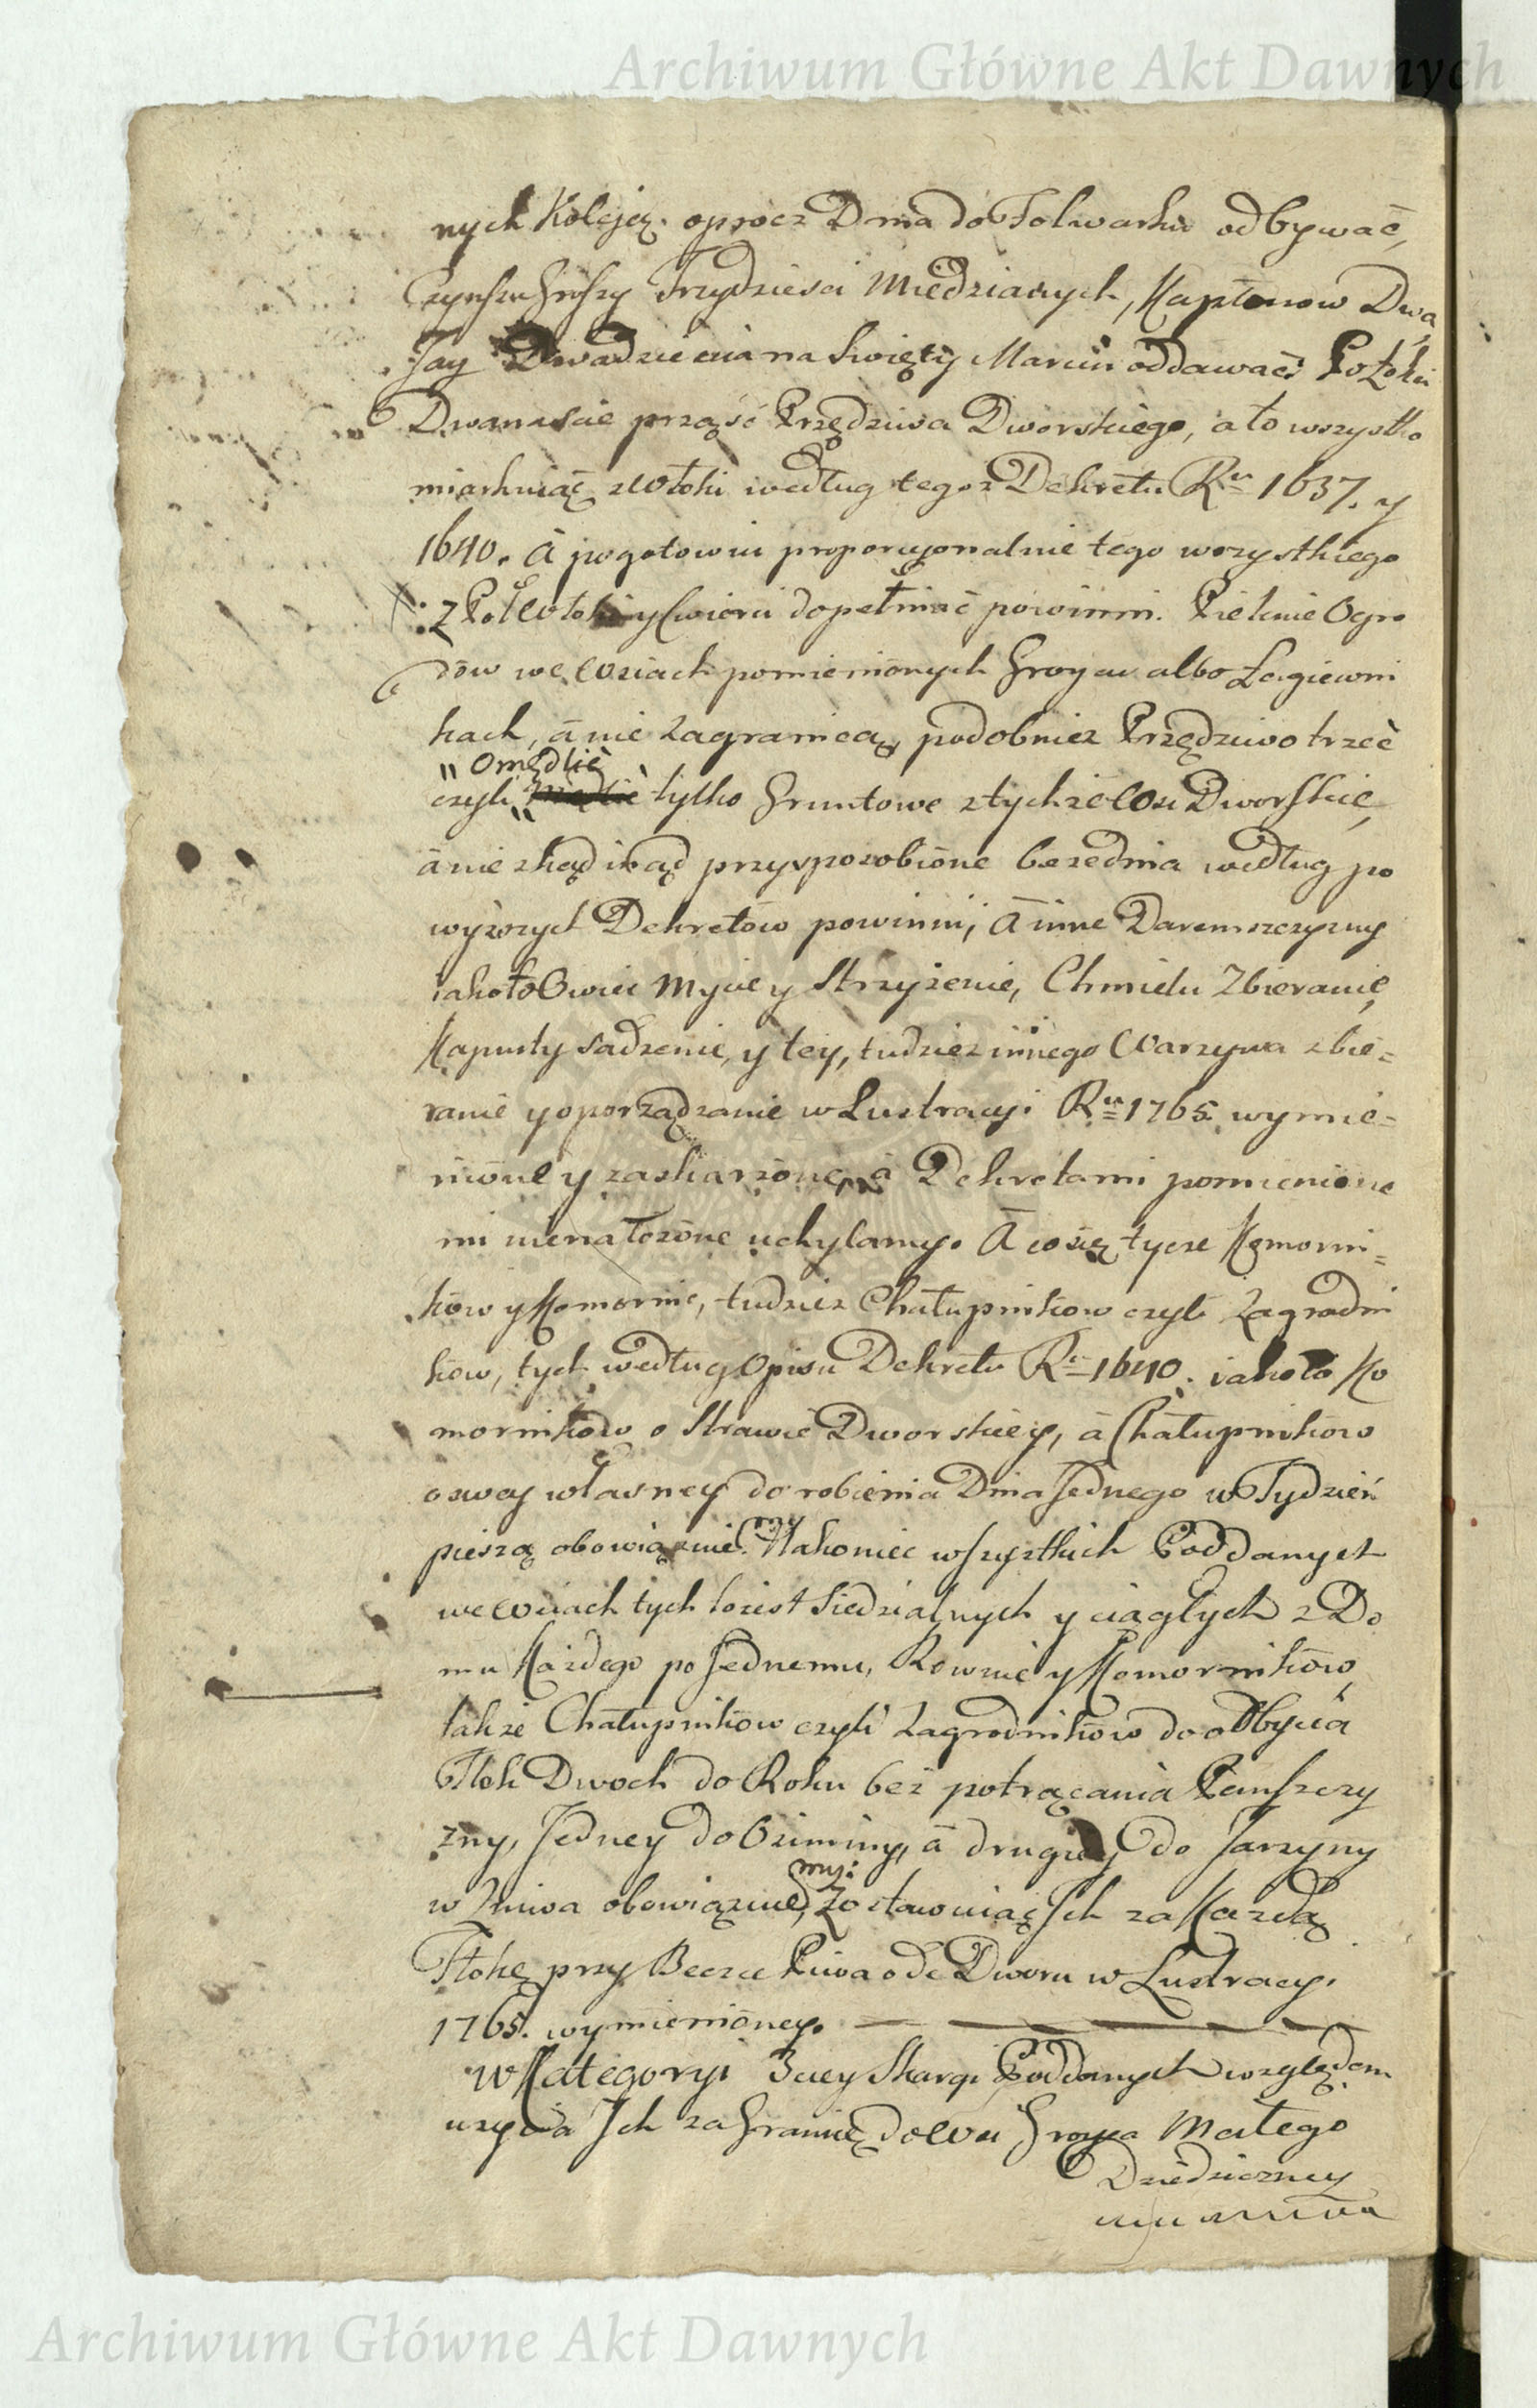 Archiwum Główne Akt Dawnych
nych Koleją. oprocz Dnia do Folwarku odbywać,
Czynszu Groszy Trzydziesci Miedzianych, Kapłonow Dwa,
Jay Dwadziescia na Swięty Marcin oddawać. Po Łokci
Dwanascie prząść Przędziwa Dworskiego, a to wszystko
miarkuiąc z Włoki według tegoz Dekretu Ru 1637. y
1640. à pogotowiu proporcyonalnie tego wszystkiego
z Poł Włoki y Cwierci dopełniać powinni. Pielenie Ogro
dów we Wsiach pomienionych Groycu albo Łagiewni
kach, à nie zagranicą, podobniez Przędziwo trzeć
" Omędlić
czyli międlić tylko Gruntowe z tychże Wsi Dworskie,
à nie zkąd inąd przysposobione bezednia według po
wyższych Dekretów powinni, à inne Daremszczyzny
iako to Owiec Mycie y Strzyżenie, Chmielu Zbieranie,
Kapusty sadzenie, y tey, tudziez innego Warzywa zbie=
ranie y oporządzanie w Lustracyi Ru 1765. wymie=
nióne y zaskarżone, à Dekretami pomienione
mi nienałożóne uchylamy. à co się tycze Komorni=
ków y Komornic, tudziez Chałupnikow czyli Zagrodni
ków, tych według Opisu Dekretu Ru 1640. iako to Ko
morników o Strawie Dworskiey, à Chałupnikow
o swey własney do robienia Dnia Jednego w Tydzień
pieszą obowiązuie.my Nakoniec wszystkich Poddanych
we Wsiach tych to iest Siedzialnych y ciągłych z Do
mu Każdego po Jednemu, Rownie y Komorników,
także Chałupników czyli Zagrodników do odbycia
Tłok Dwoch do Roku bez potrącania Panszczy
zny, Jedney do Oziminy, à drugiey do Jarzyny
w Żniwa obowiązuie,my: Zostawuiąc Jch za Każdą
Tłokę przy Beczce Piwa ode Dworu w Lustracyi
1765. wymienióney.
W Kategoryi 3ciey Skargi Poddanych względem
uzycia Jch za Granicę do Wsi Groyca Małego
Dziedziczney
Archiwum Główne Akt Dawnych